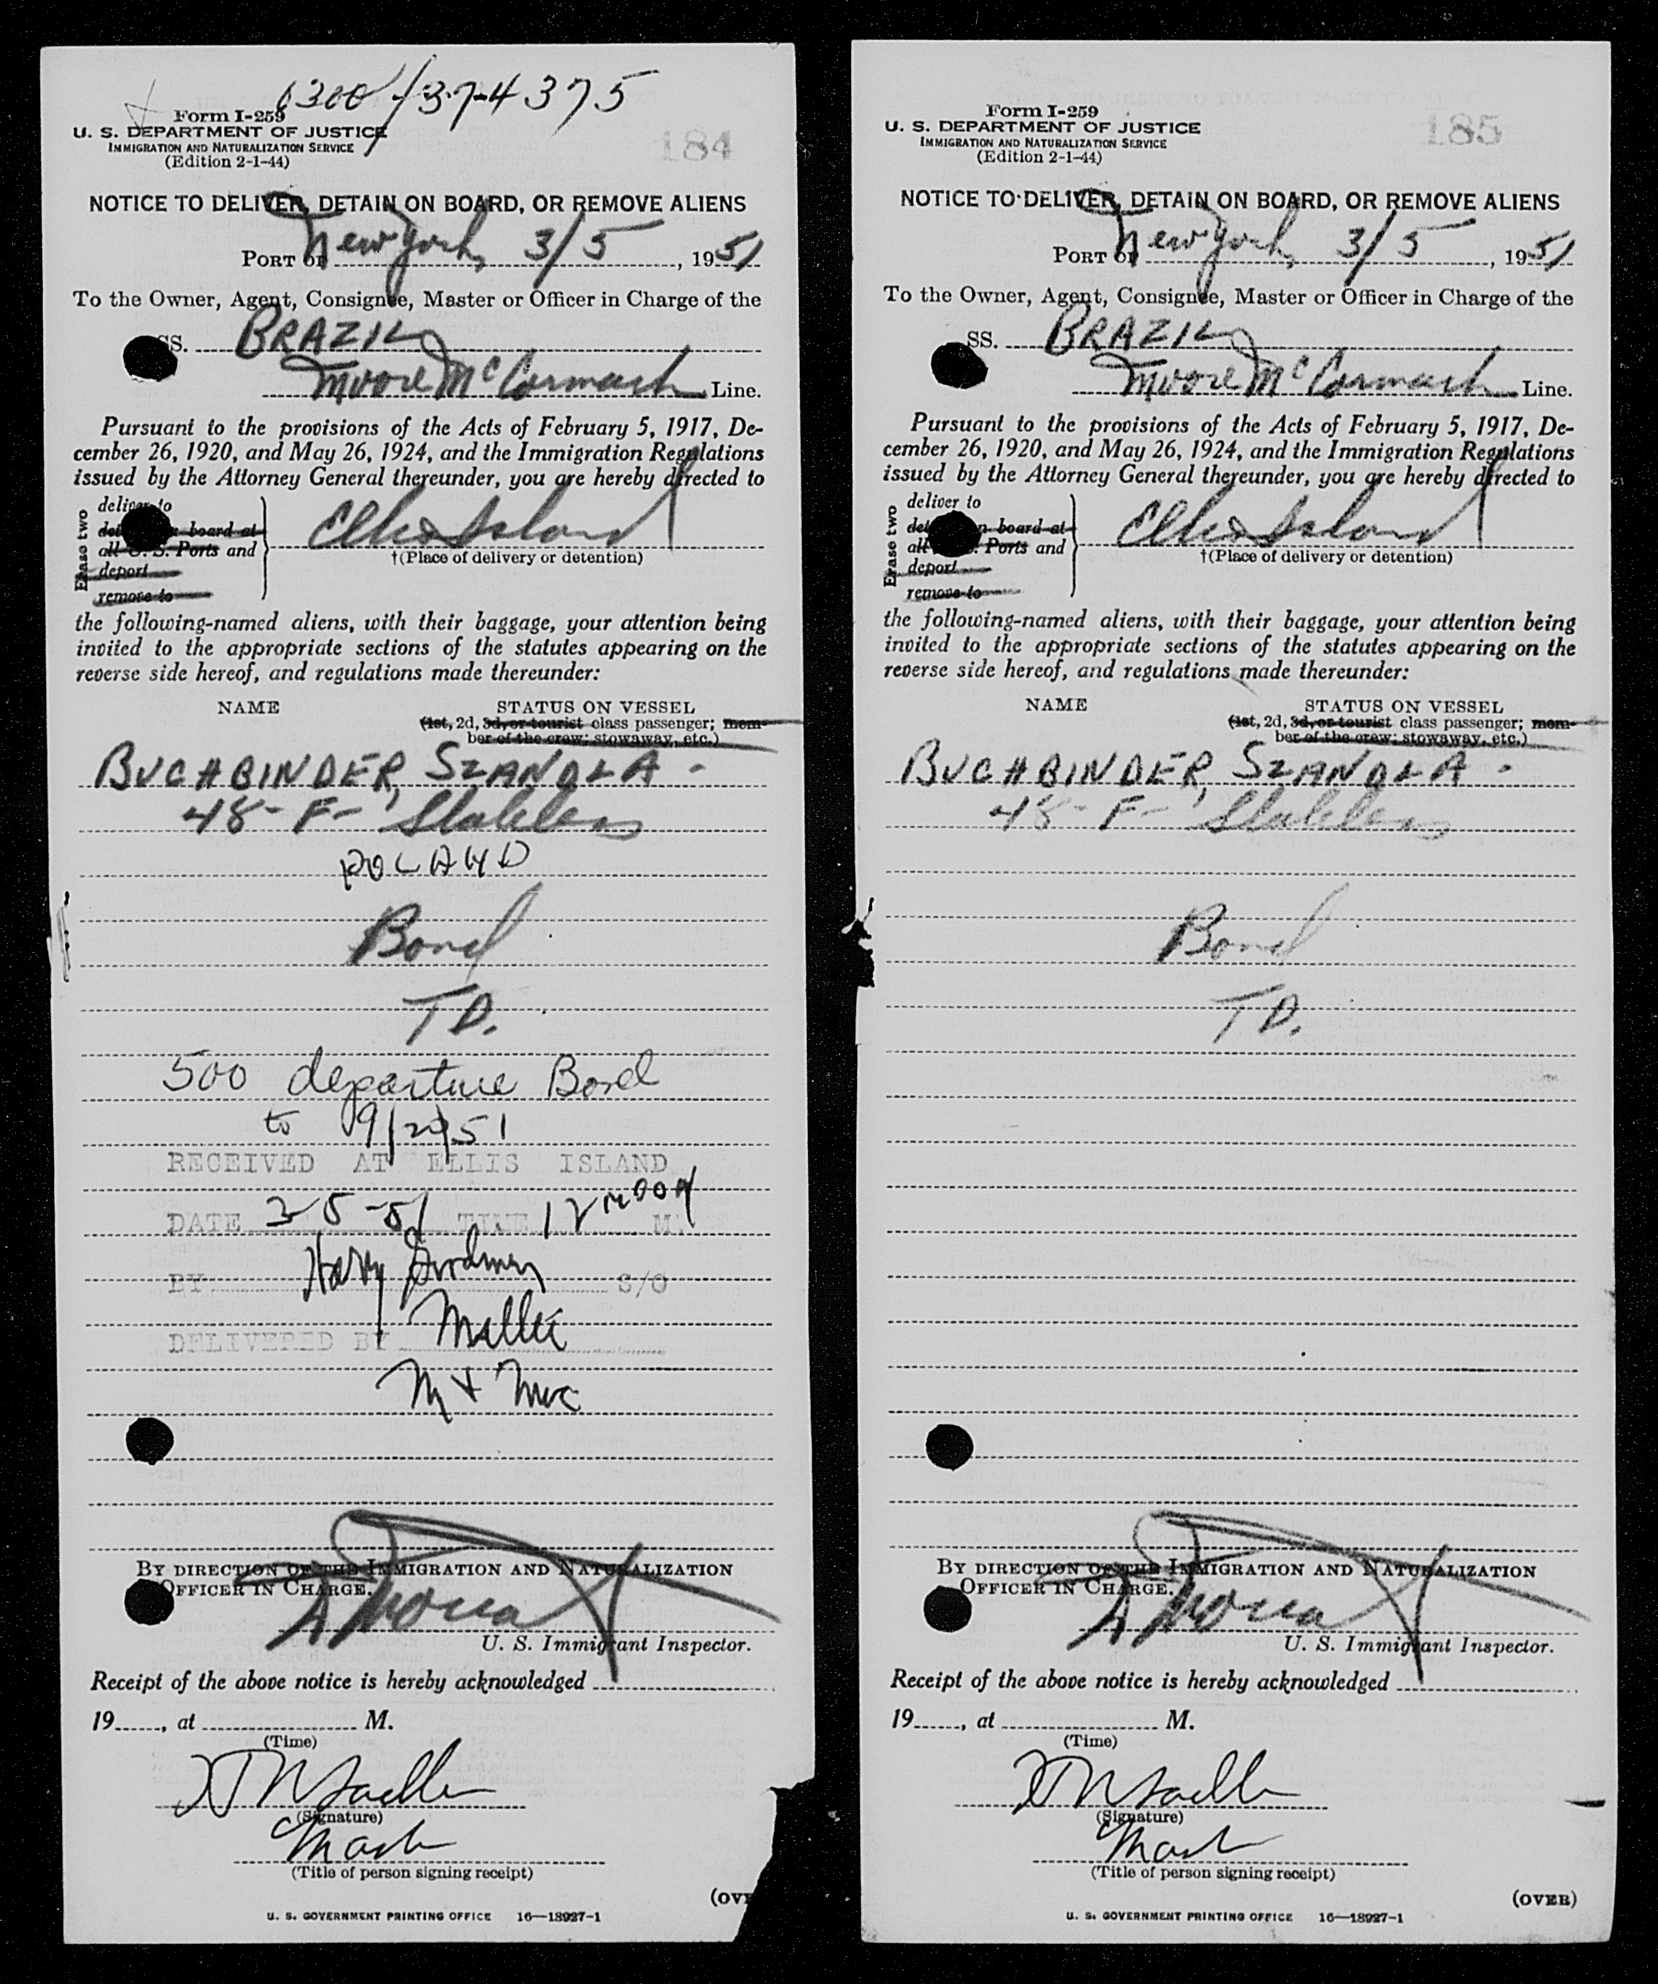 6300/374375
Form I-259
U. S. DEPARTMENT OF JUSTICE
IMMIGRATION AND NATURALIZATION SERVICE
(Edition 2-1-44)
184
NOTICE TO DELIVER, DETAIN ON BOARD, OR REMOVE ALIENS
PORT OF New York, 3/5, 1951
To the Owner, Agent, Consignee, Master or Officer in Charge of the
SS. BRAZIL
Moore McCormack Line.
Pursuant to the provisions of the Acts of February 5, 1917, De-
cember 26, 1920, and May 26, 1924, and the Immigration Regulations
issued by the Attorney General thereunder, you are hereby directed to
Erase two
deliver to
board at
all U. S. Ports and
deport
remove to
Ellis Island
†(Place of delivery or detention)
the following-named aliens, with their baggage, your attention being
invited to the appropriate sections of the statutes appearing on the
reverse side hereof, and regulations made thereunder:
NAME STATUS ON VESSEL
(1st, 2d, 3d, or tourist class passenger; mem-
ber of the crew; stowaway, etc.)
BUCHBINDER, SZANDLA -
48 - F - Stateless
POLAND
Bond
T D.
500 departure Bond
to 9/2/51
RECEIVED AT ELLIS ISLAND
DATE 3-5-51 TIME 12 noon M.
BY Harry Goodman S/O
DELIVERED BY
M & Mc
BY DIRECTION OF THE IMMIGRATION AND NATURALIZATION
OFFICER IN CHARGE.
U. S. Immigrant Inspector.
Receipt of the above notice is hereby acknowledged
19, at M.
(Time)
(Signature)
(Title of person signing receipt)
(OVE
U. S. GOVERNMENT PRINTING OFFICE 16—18927-1
Form I-259
U. S. DEPARTMENT OF JUSTICE
IMMIGRATION AND NATURALIZATION SERVICE
(Edition 2-1-44)
185
NOTICE TO DELIVER, DETAIN ON BOARD, OR REMOVE ALIENS
PORT OF New York, 3/5, 1951
To the Owner, Agent, Consignee, Master or Officer in Charge of the
SS. BRAZIL
Moore McCormack Line.
Pursuant to the provisions of the Acts of February 5, 1917, De-
cember 26, 1920, and May 26, 1924, and the Immigration Regulations
issued by the Attorney General thereunder, you are hereby directed to
Erase two
deliver to
on board at
all U. S. Ports and
deport
remove to
Ellis Island
†(Place of delivery or detention)
the following-named aliens, with their baggage, your attention being
invited to the appropriate sections of the statutes appearing on the
reverse side hereof, and regulations made thereunder:
NAME STATUS ON VESSEL
(1st, 2d, 3d, or tourist class passenger; mem-
ber of the crew; stowaway, etc.)
BUCHBINDER, SZANDLA -
48 - F - Stateless
Bond
T D.
BY DIRECTION OF THE IMMIGRATION AND NATURALIZATION
OFFICER IN CHARGE.
U. S. Immigrant Inspector.
Receipt of the above notice is hereby acknowledged
19, at M.
(Time)
(Signature)
(Title of person signing receipt)
(OVER)
U. S. GOVERNMENT PRINTING OFFICE 16—18927-1